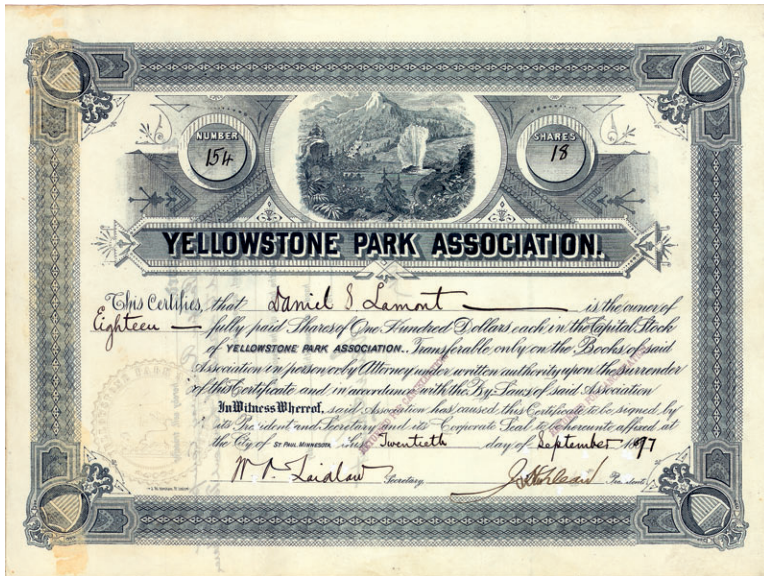 NUMBER
154
SHARES
18
YELLOWSTONE PARK ASSOCIATION.
This Certifies, that Daniel S Lamont is the owner of
Eighteen fully paid Shares of One Hundred Dollars each in the Capital Stock
of YELLOWSTONE PARK ASSOCIATION., Transferable only on the Books of said
Association in person or by Attorney under written authority upon the surrender
of this Certificate and in accordance with the By Laws of said Association
In Witness Whereof, said Association has caused this Certificate to be signed by
its President and Secretary and its Corporate Seal to be hereunto affixed at
the City of ST PAUL, MINNESOTA this Twentieth day of September 1897
Secretary
President